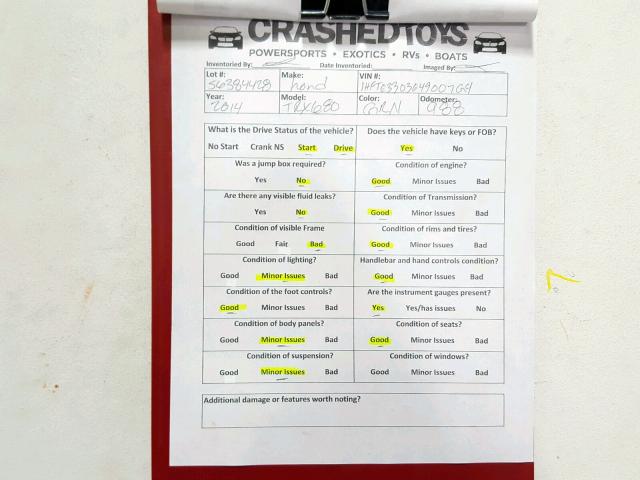 CRASHEDTOYS
POWERSPORTS • EXOTICS • RVs • BOATS
Inventoried By: Date Inventoried: Imaged By:
Lot #: Make: VIN #:
56384428 hond
Year: Model: Color: Odometer:
2014 GRN 988
What is the Drive Status of the vehicle? Does the vehicle have keys or FOB?
No Start Crank NS Start Drive Yes No
Was a jump box required? Condition of engine?
Yes No Good Minor Issues Bad
Are there any visible fluid leaks? Condition of Transmission?
Yes No Good Minor Issues Bad
Condition of visible Frame Condition of rims and tires?
Good Fair Bad Good Minor Issues Bad
Condition of lighting? Handlebar and hand controls condition?
Good Minor Issues Bad Good Minor Issues Bad
Condition of the foot controls? Are the instrument gauges present?
Good Minor Issues Bad Yes Yes/has issues No
Condition of body panels? Condition of seats?
Good Minor Issues Bad Good Minor Issues Bad
Condition of suspension? Condition of windows?
Good Minor Issues Bad Good Minor Issues Bad
Additional damage or features worth noting?